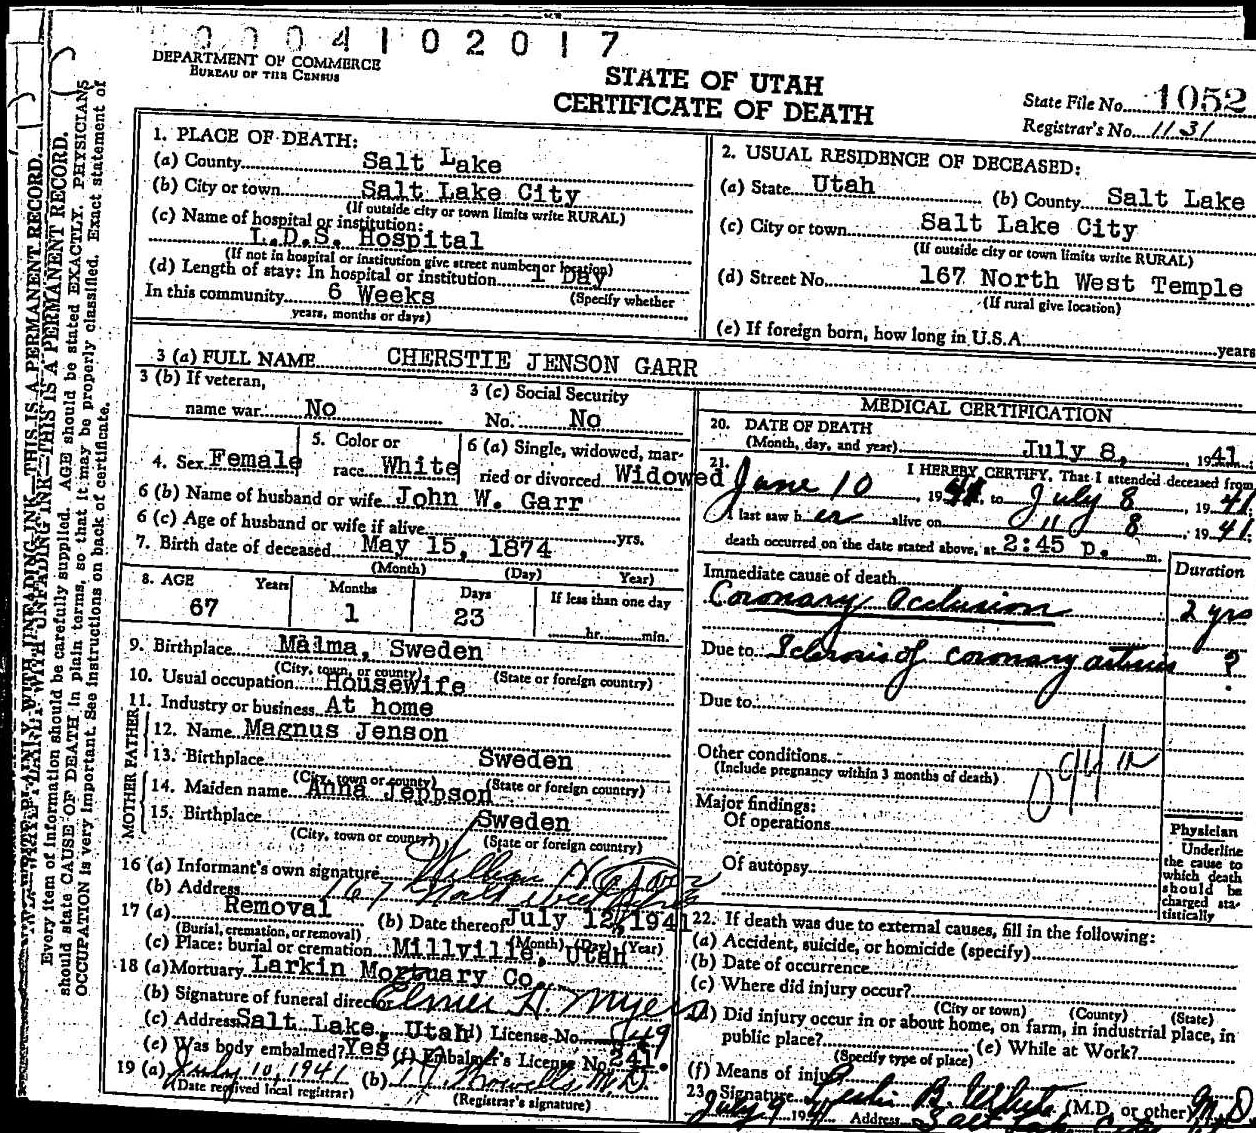 0004102017
DEPARTMENT OF COMMERCE
BUREAU OF THE CENSUS
STATE OF UTAH
CERTIFICATE OF DEATH
State File No. 1052
Registrar's No. 1131
1. PLACE OF DEATH:
(a) County Salt Lake
(b) City or town Salt Lake City
(If outside city or town limits write RURAL)
(c) Name of hospital or institution:
L.D.S. Hospital
(If not in hospital or institution give street number or location)
(d) Length of stay: In hospital or institution 1 Day
In this community 6 Weeks (Specify whether
years, months or days)
2. USUAL RESIDENCE OF DECEASED:
(a) State Utah (b) County Salt Lake
(c) City or town Salt Lake City
(If outside city or town limits write RURAL)
(d) Street No. 167 North West Temple
(If rural give location)
(e) If foreign born, how long in U.S.A. years
3 (a) FULL NAME CHERSTIE JENSON GARR
3 (b) If veteran,
name war. No
3 (c) Social Security
No. No
4. Sex Female
5. Color or
race White
6 (a) Single, widowed, mar-
ried or divorced Widowed
6 (b) Name of husband or wife John W. Garr
6 (c) Age of husband or wife if alive yrs.
7. Birth date of deceased May 15, 1874
(Month) (Day) Year)
8. AGE Years Months Days If less than one day
67 1 23 hr. min.
9. Birthplace Malma, Sweden
(City, town, or county) (State or foreign country)
10. Usual occupation Housewife
11. Industry or business At home
FATHER
12. Name Magnus Jenson
13. Birthplace Sweden
(City, town or county) (State or foreign country)
MOTHER
14. Maiden name Anna Jeppson
15. Birthplace Sweden
(City, town or county) (State or foreign country)
16 (a) Informant's own signature William
(b) Address 167
17 (a) Removal (b) Date thereof July 12, 1941
(Burial, cremation, or removal) (Month) (Day) (Year)
(c) Place: burial or cremation Millville, Utah
18 (a) Mortuary Larkin Mortuary Co.
(b) Signature of funeral director Elmer H. Myers
(c) Address Salt Lake, Utah (d) License No.
(e) Was body embalmed? Yes (f) Embalmer's License No. 241.
19 (a) July 10, 1941 (b) M.D.
(Date received local registrar) (Registrar's signature)
MEDICAL CERTIFICATION
20. DATE OF DEATH
(Month, day, and year) July 8, 1941
21. I HEREBY CERTIFY, That I attended deceased from
June 10, 1941, to July 8, 1941;
I last saw her alive on " 8, 1941;
death occurred on the date stated above, at 2:45 p. m.
Duration
Immediate cause of death
Coronary Occlusion 2 yrs
Due to Sclerosis of coronary arteries ?
Due to
Other conditions
(Include pregnancy within 3 months of death)
Major findings:
Of operations
Of autopsy
Physician
Underline
the cause to
which death
should be
charged sta-
tistically
22. If death was due to external causes, fill in the following:
(a) Accident, suicide, or homicide (specify)
(b) Date of occurrence
(c) Where did injury occur?
(City or town) (County) (State)
(d) Did injury occur in or about home, on farm, in industrial place, in
public place? (e) While at Work?
(Specify type of place)
(f) Means of injury
23. Signature Leslie B. White (M.D. or other) M.D.
July 9 1941 Address Salt Lake City
Every item of information should be carefully supplied. AGE should be stated EXACTLY. PHYSICIANS
should state CAUSE OF DEATH in plain terms, so that it may be properly classified. Exact statement of
OCCUPATION is very important. See instructions on back of certificate.